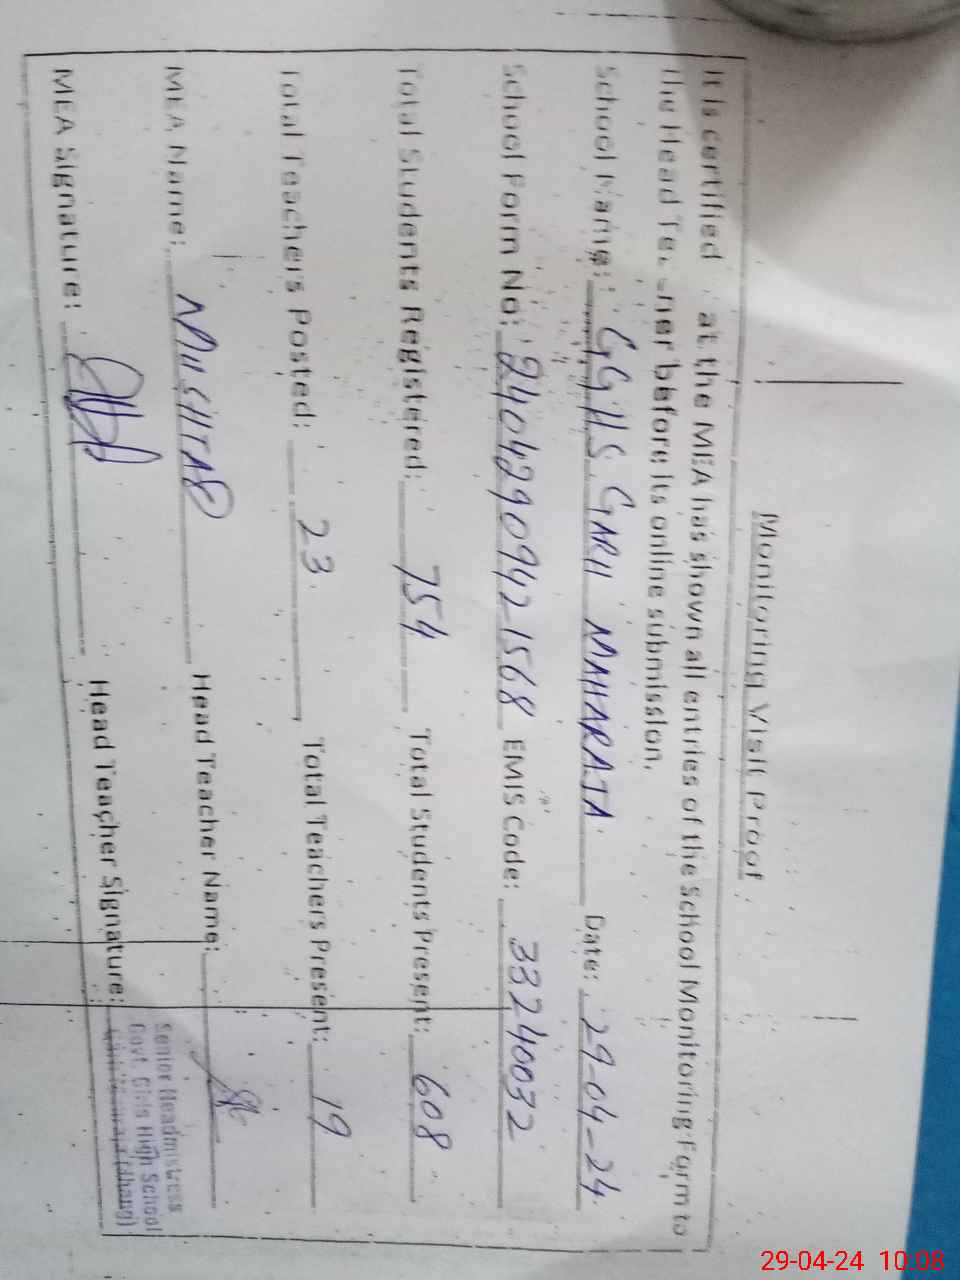 Monitoring Visit Proof
It is certified at the MEA has shown all entries of the School Monitoring Form to
the Head Teacher before its online submission.
School Name: GGHS GARH MAHARAJA Date: 29-04-24
School Form No: 24042909421568 EMIS Code: 33240032
Total Students Registered: 754 Total Students Present: 608
Total Teachers Posted: 23 Total Teachers Present: 19
MEA Name: MUSHTAQ Head Teacher Name:
MEA Signature: Head Teacher Signature:
Senior Headmistress
Govt. Girls High School
(Jhang)
29-04-24 10:08